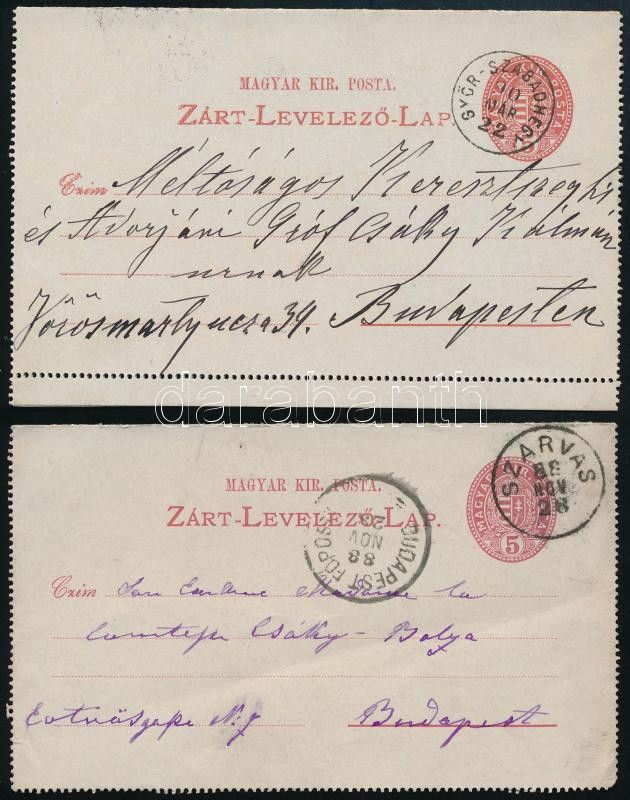 MAGYAR KIR. POSTA.
ZÁRT-LEVELEZŐ-LAP.
GYŐR-SZABADHEGY
MAR
22
Czim Méltóságos Keresztszeghi
és Adorjáni Gróf Csáky Kálmán
urnak
Vörösmarty ucza 39. Budapesten
darabanth
MAGYAR KIR. POSTA.
ZÁRT-LEVELEZŐ-LAP.
SZARVAS
88
NOV
28
5
BUDAPEST FŐPOSTA
88
NOV
Czim Son Madame la
Comtesse Csáky-Bolya
Eotvösgasse N. 7 Budapest